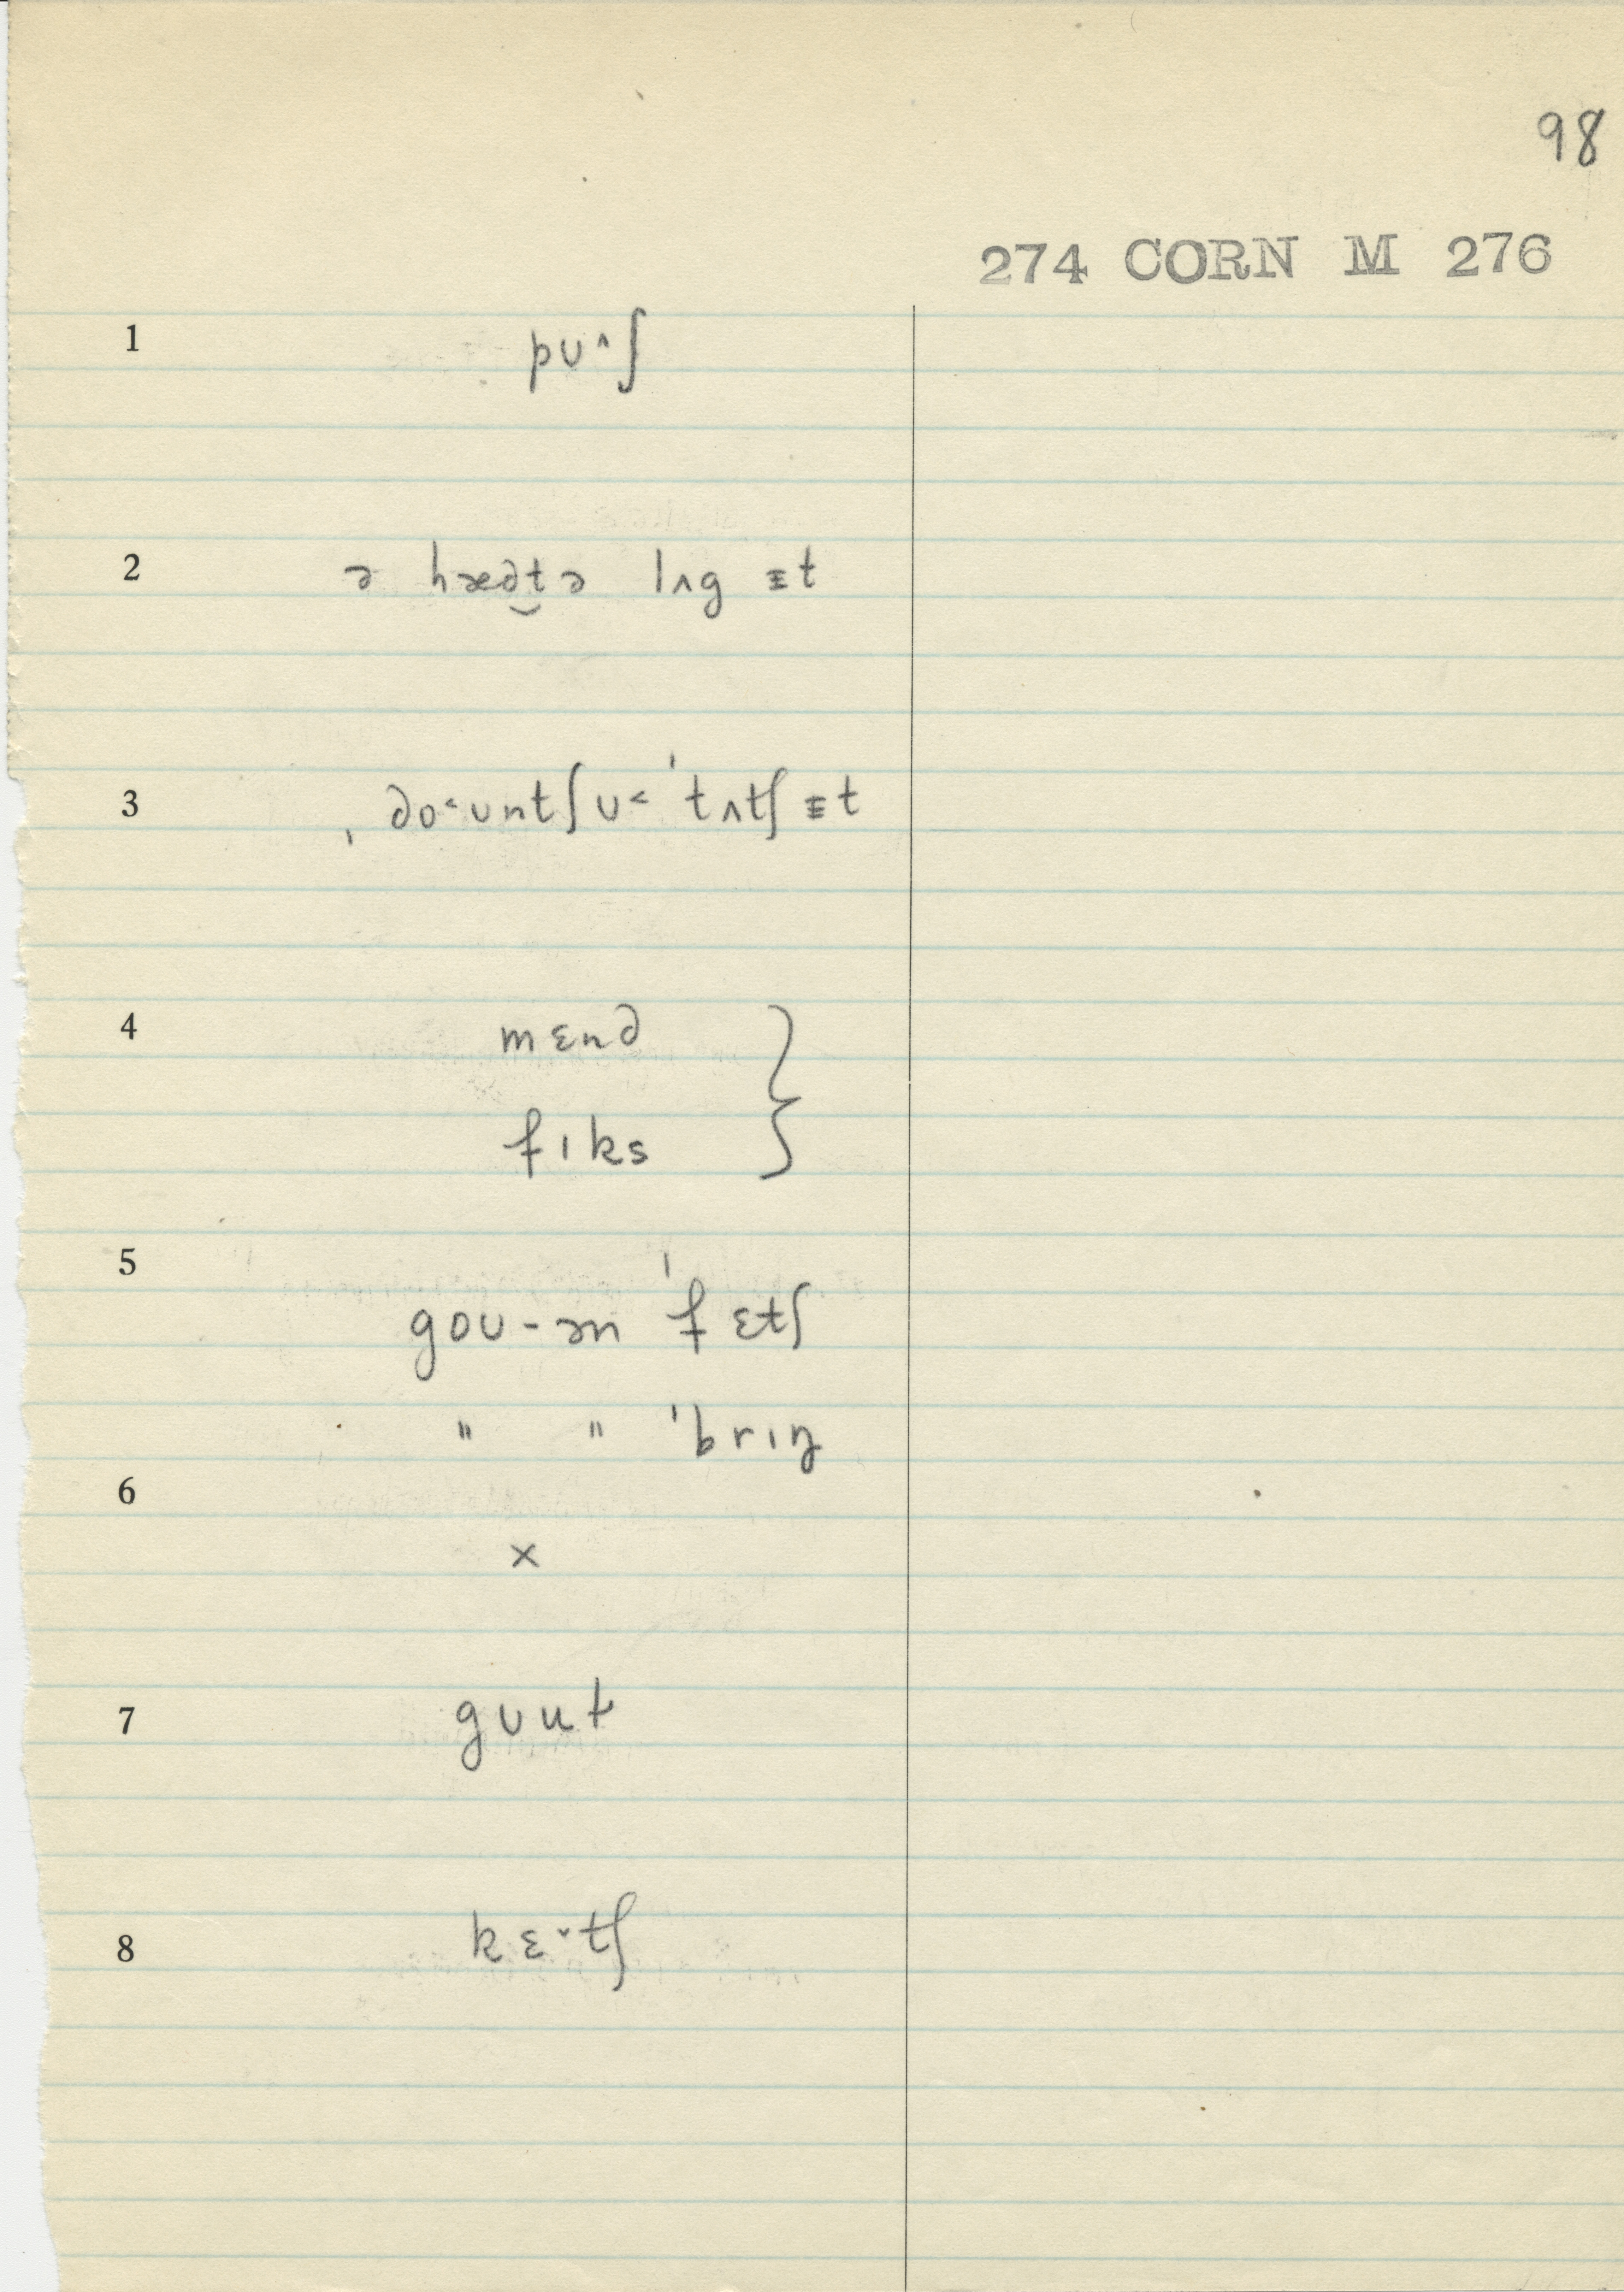 98
274 CORN M 276
1 pʊ^ʃ
2 ə hæd̮t ə lʌg ᵻt
3 ˌdo˂ʊntʃʊ˂ ˈtʌtʃ ᵻt
4 mɛnd }
fɪks
5 goʊ-ən ˈfɛtʃ
" " ˈbrɪŋ
6 ×
7 gʊut
8 kɛ˅tʃ